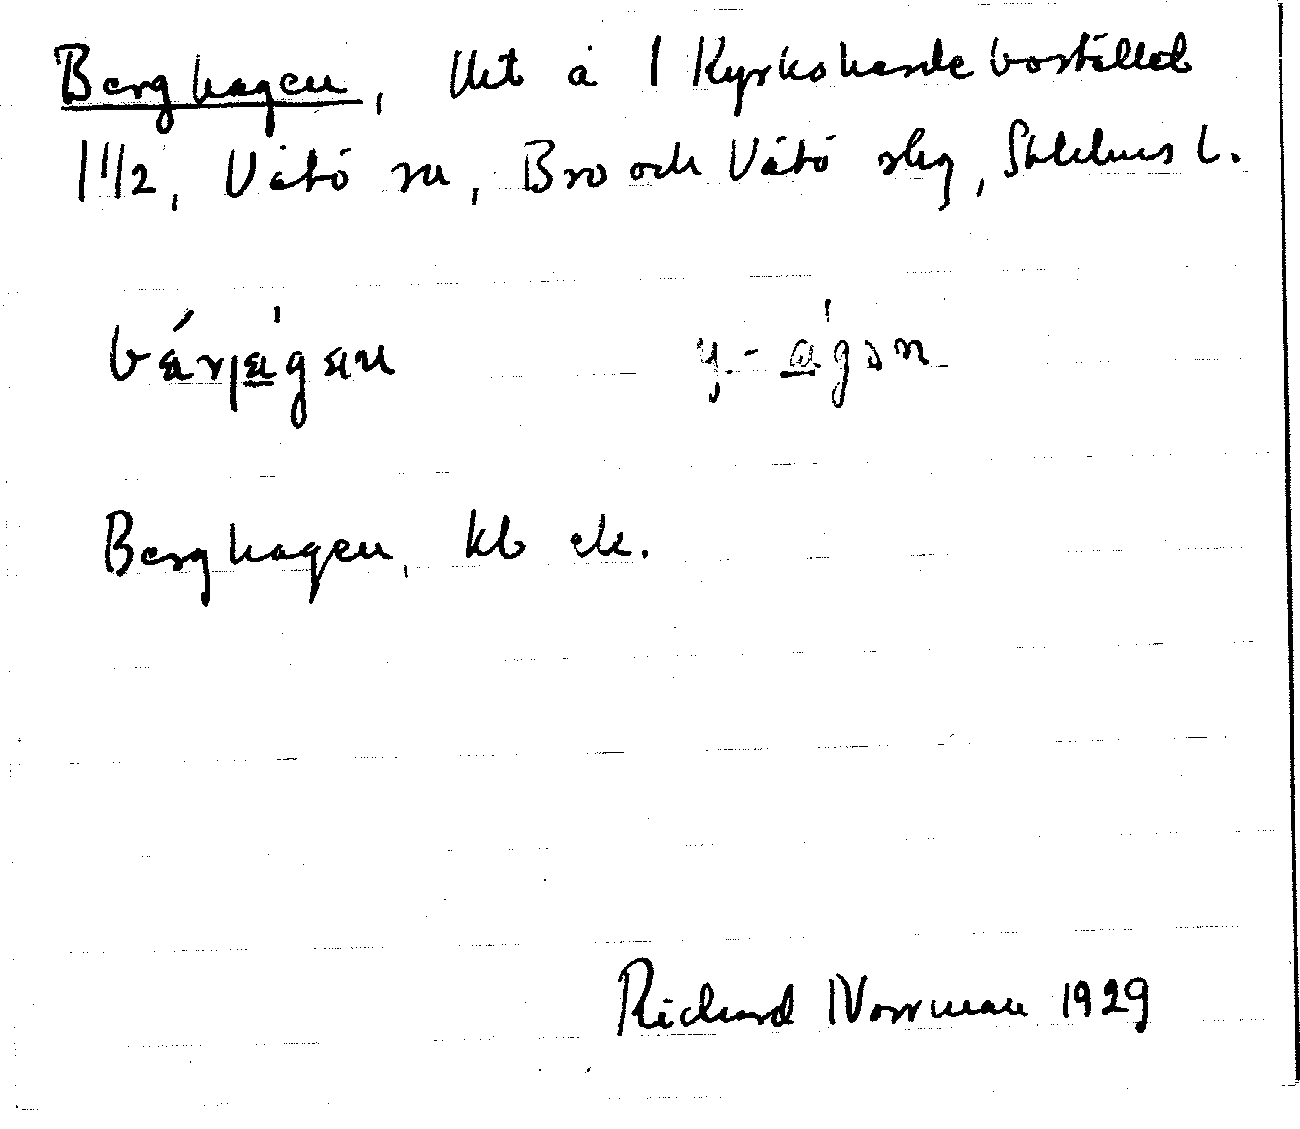 Berghagen, Utt å 1 Kyrkoherdebostället
1 1/2, Vätö sn, Bro och Vätö slg, Sthlms l.
bárjágan y. - ágən
Berghagen, kb ek.
Richard Norrman 1929